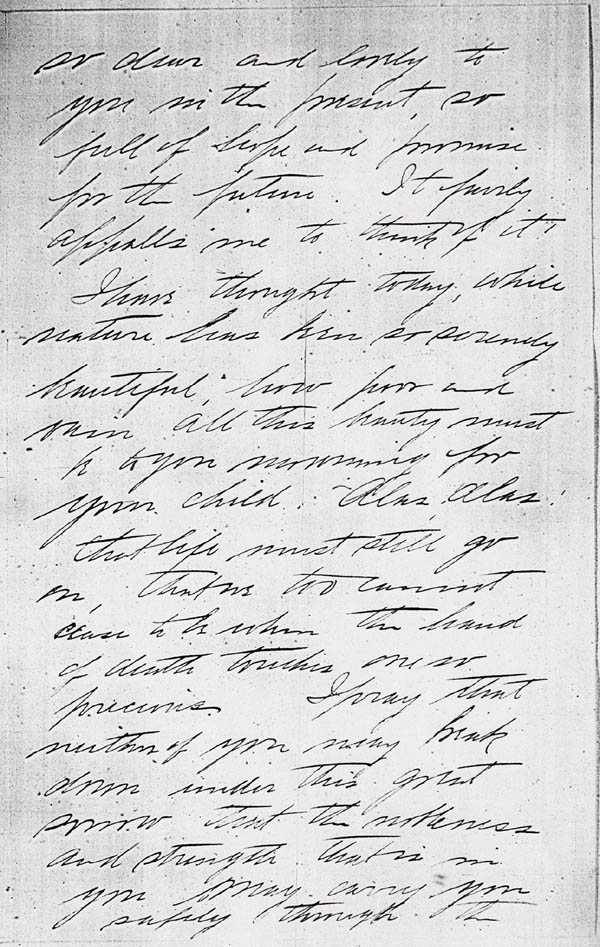 so dear and lovely to
you in the present, so
full of hope and promise
for the future. It fairly
appalls me to think of it!
I have thought today, while
nature has been so serenely
beautiful, how poor and
vain all this beauty must
be to you mourning for
your child. Alas, Alas!
that life must still go
on, that we too cannot
cease to be when the hand
of death touches one so
precious. I pray that
neither of you may break
down under this great
sorrow that the nobleness
and strength that is in
you may carry you
safely through the